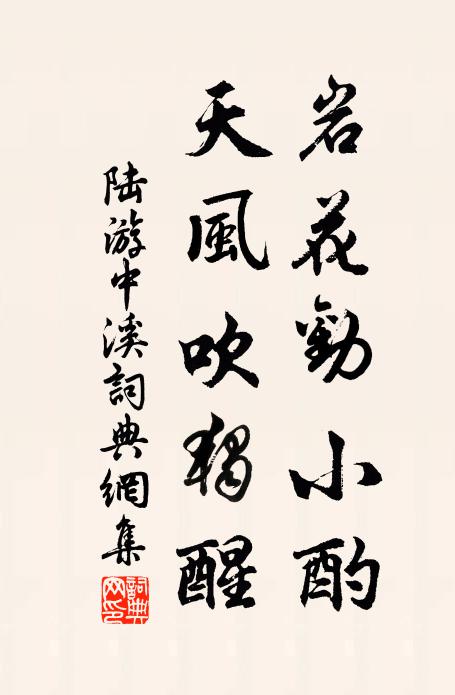 岩花勸小酌
天風吹獨醒
陆游中溪詞典網集
詞典网印